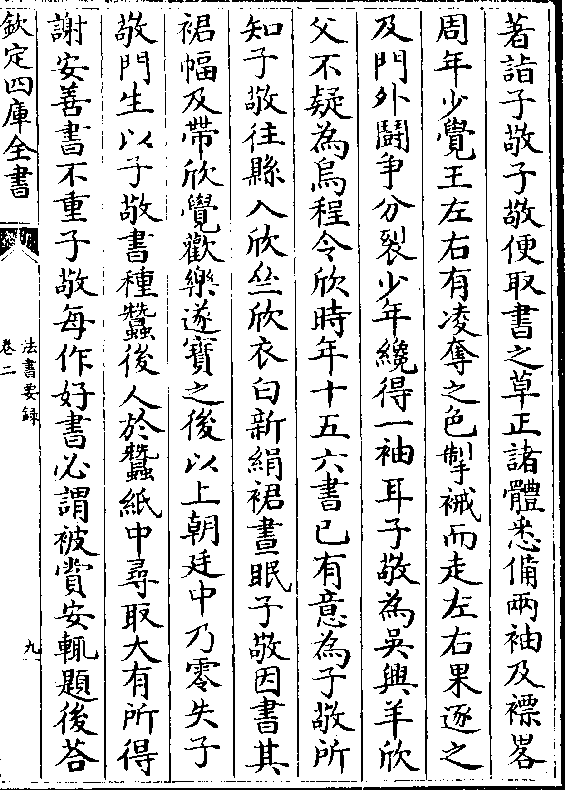 著詣子敬子敬便取書之草正諸體悉備兩袖及褾畧
周年少覺王左右有凌奪之色掣裓而走左右果逐之
及門外鬬争分裂少年纔得一袖耳子敬為吳興羊欣
父不疑為烏程令欣時年十五六書已有意為子敬所
知子敬往縣入欣𫝑欣衣白新絹裙晝眠子敬因書其
裙幅及帶欣覺歡樂遂寳之後以上朝廷中乃零失子
敬門生以子敬書種蠶後人於蠶紙中尋取大有所得
謝安善書不重子敬每作好書必謂被賞安輒題後荅
欽定四庫全書
法書要錄
卷二
九